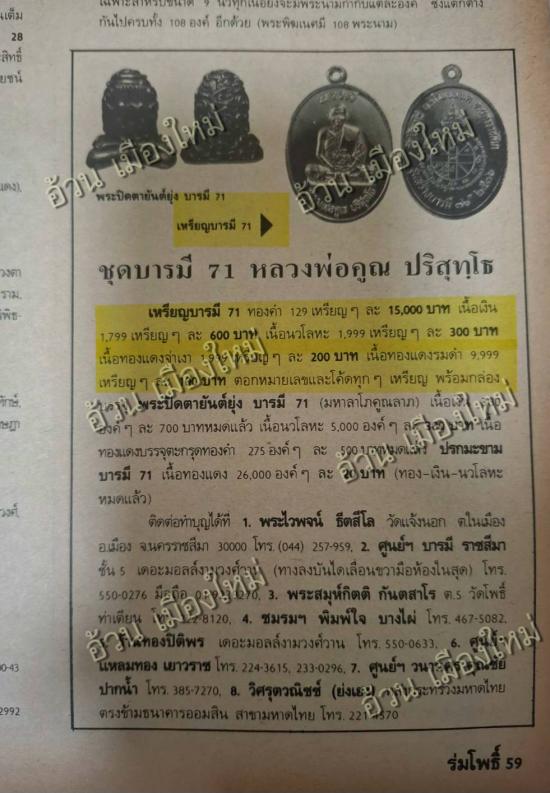 เฉพาะสำหรับขนาด 9 นิ้วทุกเนื้อยังจะมีพระนามกำกับแต่ละองค์ ซึ่งแตกต่าง
กันไปครบทั้ง 108 องค์ อีกด้วย (พระพิฆเนศมี 108 พระนาม)
พระปิดตายันต์ยุ่ง บารมี 71
เหรียญบารมี 71
ชุดบารมี 71 หลวงพ่อคูณ ปริสุทฺโธ
เหรียญบารมี 71 ทองคำ 129 เหรียญๆ ละ 15,000 บาท เนื้อเงิน
1,799 เหรียญๆ ละ 600 บาท เนื้อนวโลหะ 1,999 เหรียญๆ ละ 300 บาท
เนื้อทองแดงชำเงา เหรียญๆ ละ 200 บาท เนื้อทองแดงรมดำ 9,999
เหรียญๆ ละ 100 บาท ตอกหมายเลขและโค้ดทุกๆ เหรียญ พร้อมกล่อง
พระปิดตายันต์ยุ่ง บารมี 71 (มหาลาโภคูณลาภ) เนื้อเงิน
องค์ๆ ละ 700 บาทหมดแล้ว เนื้อนวโลหะ 5,000 องค์ๆ ละ บาท เนื้อ
ทองแดงบรรจุตะกรุดทองคำ 275 องค์ๆ ละ 500 บาทหมดแล้ว ปรกมะขาม
บารมี 71 เนื้อทองแดง 26,000 องค์ๆ ละ 20 บาท (ทอง-เงิน-นวโลหะ
หมดแล้ว)
ติดต่อทำบุญได้ที่ 1. พระไวพจน์ ธีตสีโล วัดแจ้งนอก ต.ในเมือง
อ.เมือง จ.นครราชสีมา 30000 โทร. (044) 257-959, 2. ศูนย์ฯ บารมี ราชสีมา
ชั้น 5 เดอะมอลล์งามวงศ์วาน (ทางลงบันไดเลื่อนขวามือห้องในสุด) โทร.
550-0276 มือถือ 3. พระสมุห์กิตติ กันตสาโร ต.5 วัดโพธิ์
ท่าเตียน โทร. 4. ชมรมฯ พิมพ์ใจ บางไผ่ โทร. 467-5082,
เดอะมอลล์งามวงศ์วาน โทร. 550-0633, 6. ศูนย์ฯ
แหลมทอง เยาวราช โทร. 224-3615, 233-0296, 7. ศูนย์ฯ
ปากน้ำ โทร. 385-7270, 8. วิศรุตวณิชช์ มหาดไทย
ตรงข้ามธนาคารออมสิน สาขามหาดไทย โทร.
ร่มโพธิ์ 59
28
00-43
2992
อ้วน เมืองใหม่
อ้วน เมืองใหม่
อ้วน เมืองใหม่
อ้วน เมืองใหม่
อ้วน เมืองใหม่
อ้วน เมืองใหม่